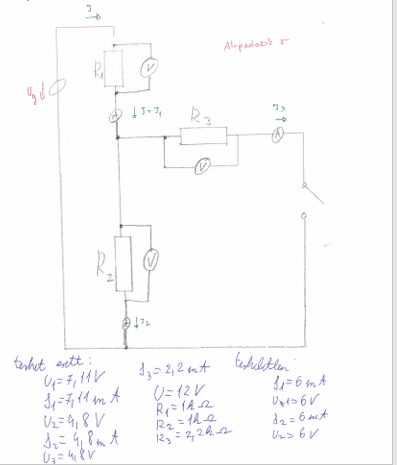 I
R1
V
Ug
A
I=I1
R3
I3
A
V
R2
V
I2
terhelt esett:
U1=7,11V
I1=7,11mA
U2=4,8V
I2=4,8mA
U3=4,8V
I3=2,2mA
U=12V
R1=1kΩ
R2=1kΩ
R3=2,2kΩ
terheletlen:
I1=6mA
U1=6V
I2=6mA
U2=6V